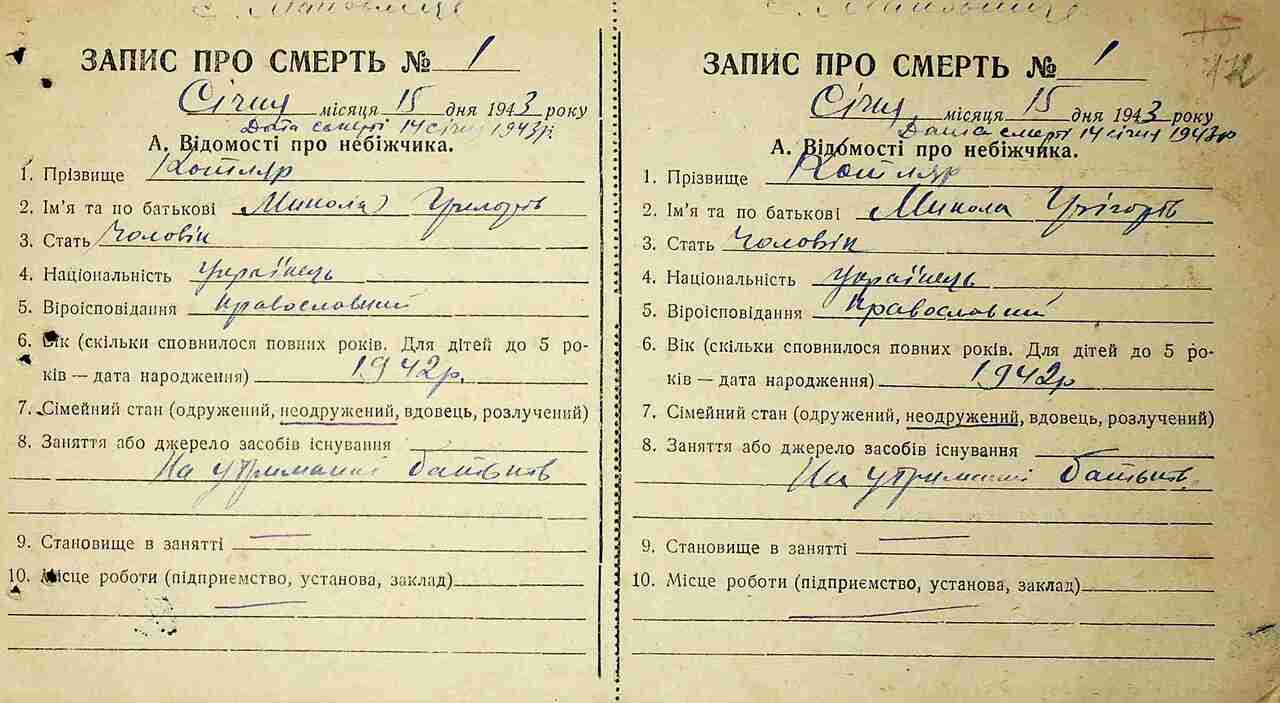 ЗАПИС ПРО СМЕРТЬ № 1
Січня місяця 15 дня 1943 року
Дата смерті 14 січня 1943 р.
А. Відомості про небіжчика.
1. Прізвище Котляр
2. Ім'я та по батькові Микола
3. Стать Чоловік
4. Національність Українець
5. Віроісповідання Православний
6. Вік (скільки сповнилося повних років. Для дітей до 5 ро-
ків — дата народження) 1942 р.
7. Сімейний стан (одружений, неодружений, вдовець, розлучений)
8. Заняття або джерело засобів існування
На утриманні батьків
9. Становище в занятті —
10. Місце роботи (підприємство, установа, заклад)
—
ЗАПИС ПРО СМЕРТЬ № 1
Січня місяця 15 дня 1943 року
Дата смерті 14 січня 1943 р
А. Відомості про небіжчика.
1. Прізвище Котляр
2. Ім'я та по батькові Микола
3. Стать Чоловік
4. Національність Українець
5. Віроісповідання Православний
6. Вік (скільки сповнилося повних років. Для дітей до 5 ро-
ків — дата народження) 1942 р
7. Сімейний стан (одружений, неодружений, вдовець, розлучений)
8. Заняття або джерело засобів існування
На утриманні батьків.
9. Становище в занятті —
10. Місце роботи (підприємство, установа, заклад)
—